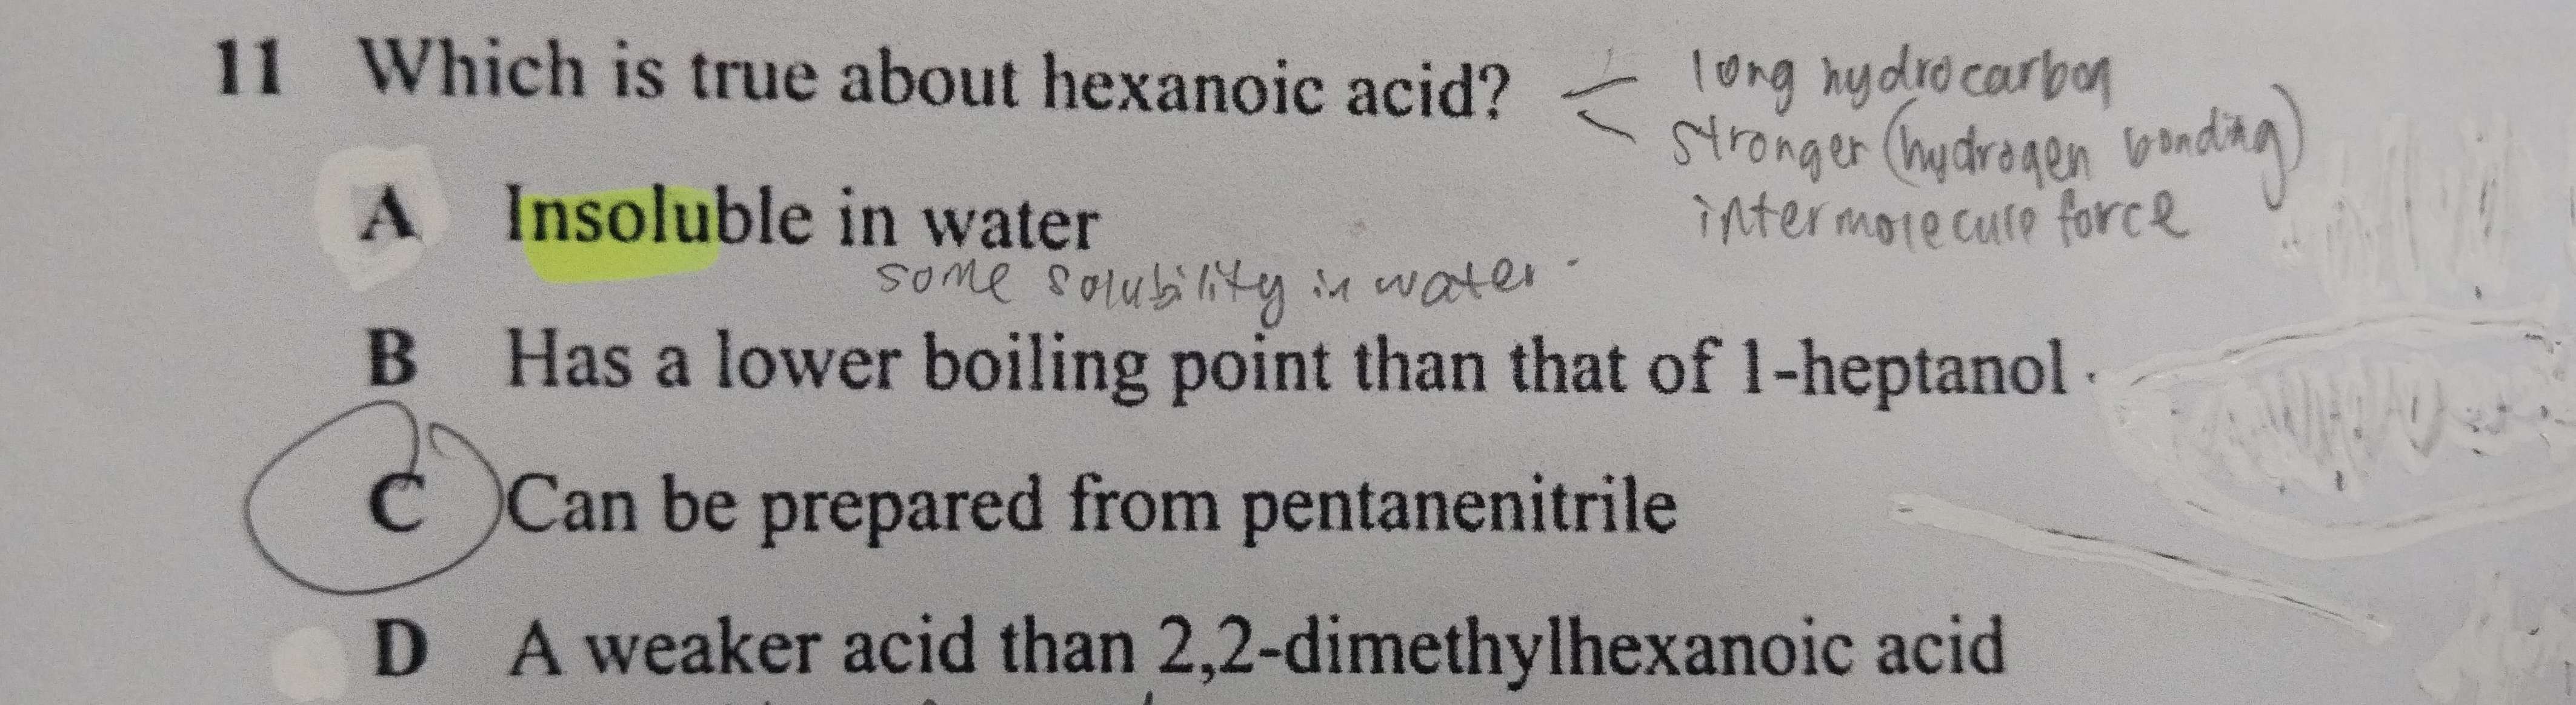 11 Which is true about hexanoic acid?
long hydrocarbon
stronger (hydrogen bonding)
intermolecule force
A Insoluble in water
some solubility in water.
B Has a lower boiling point than that of 1-heptanol
C Can be prepared from pentanenitrile
D A weaker acid than 2,2-dimethylhexanoic acid